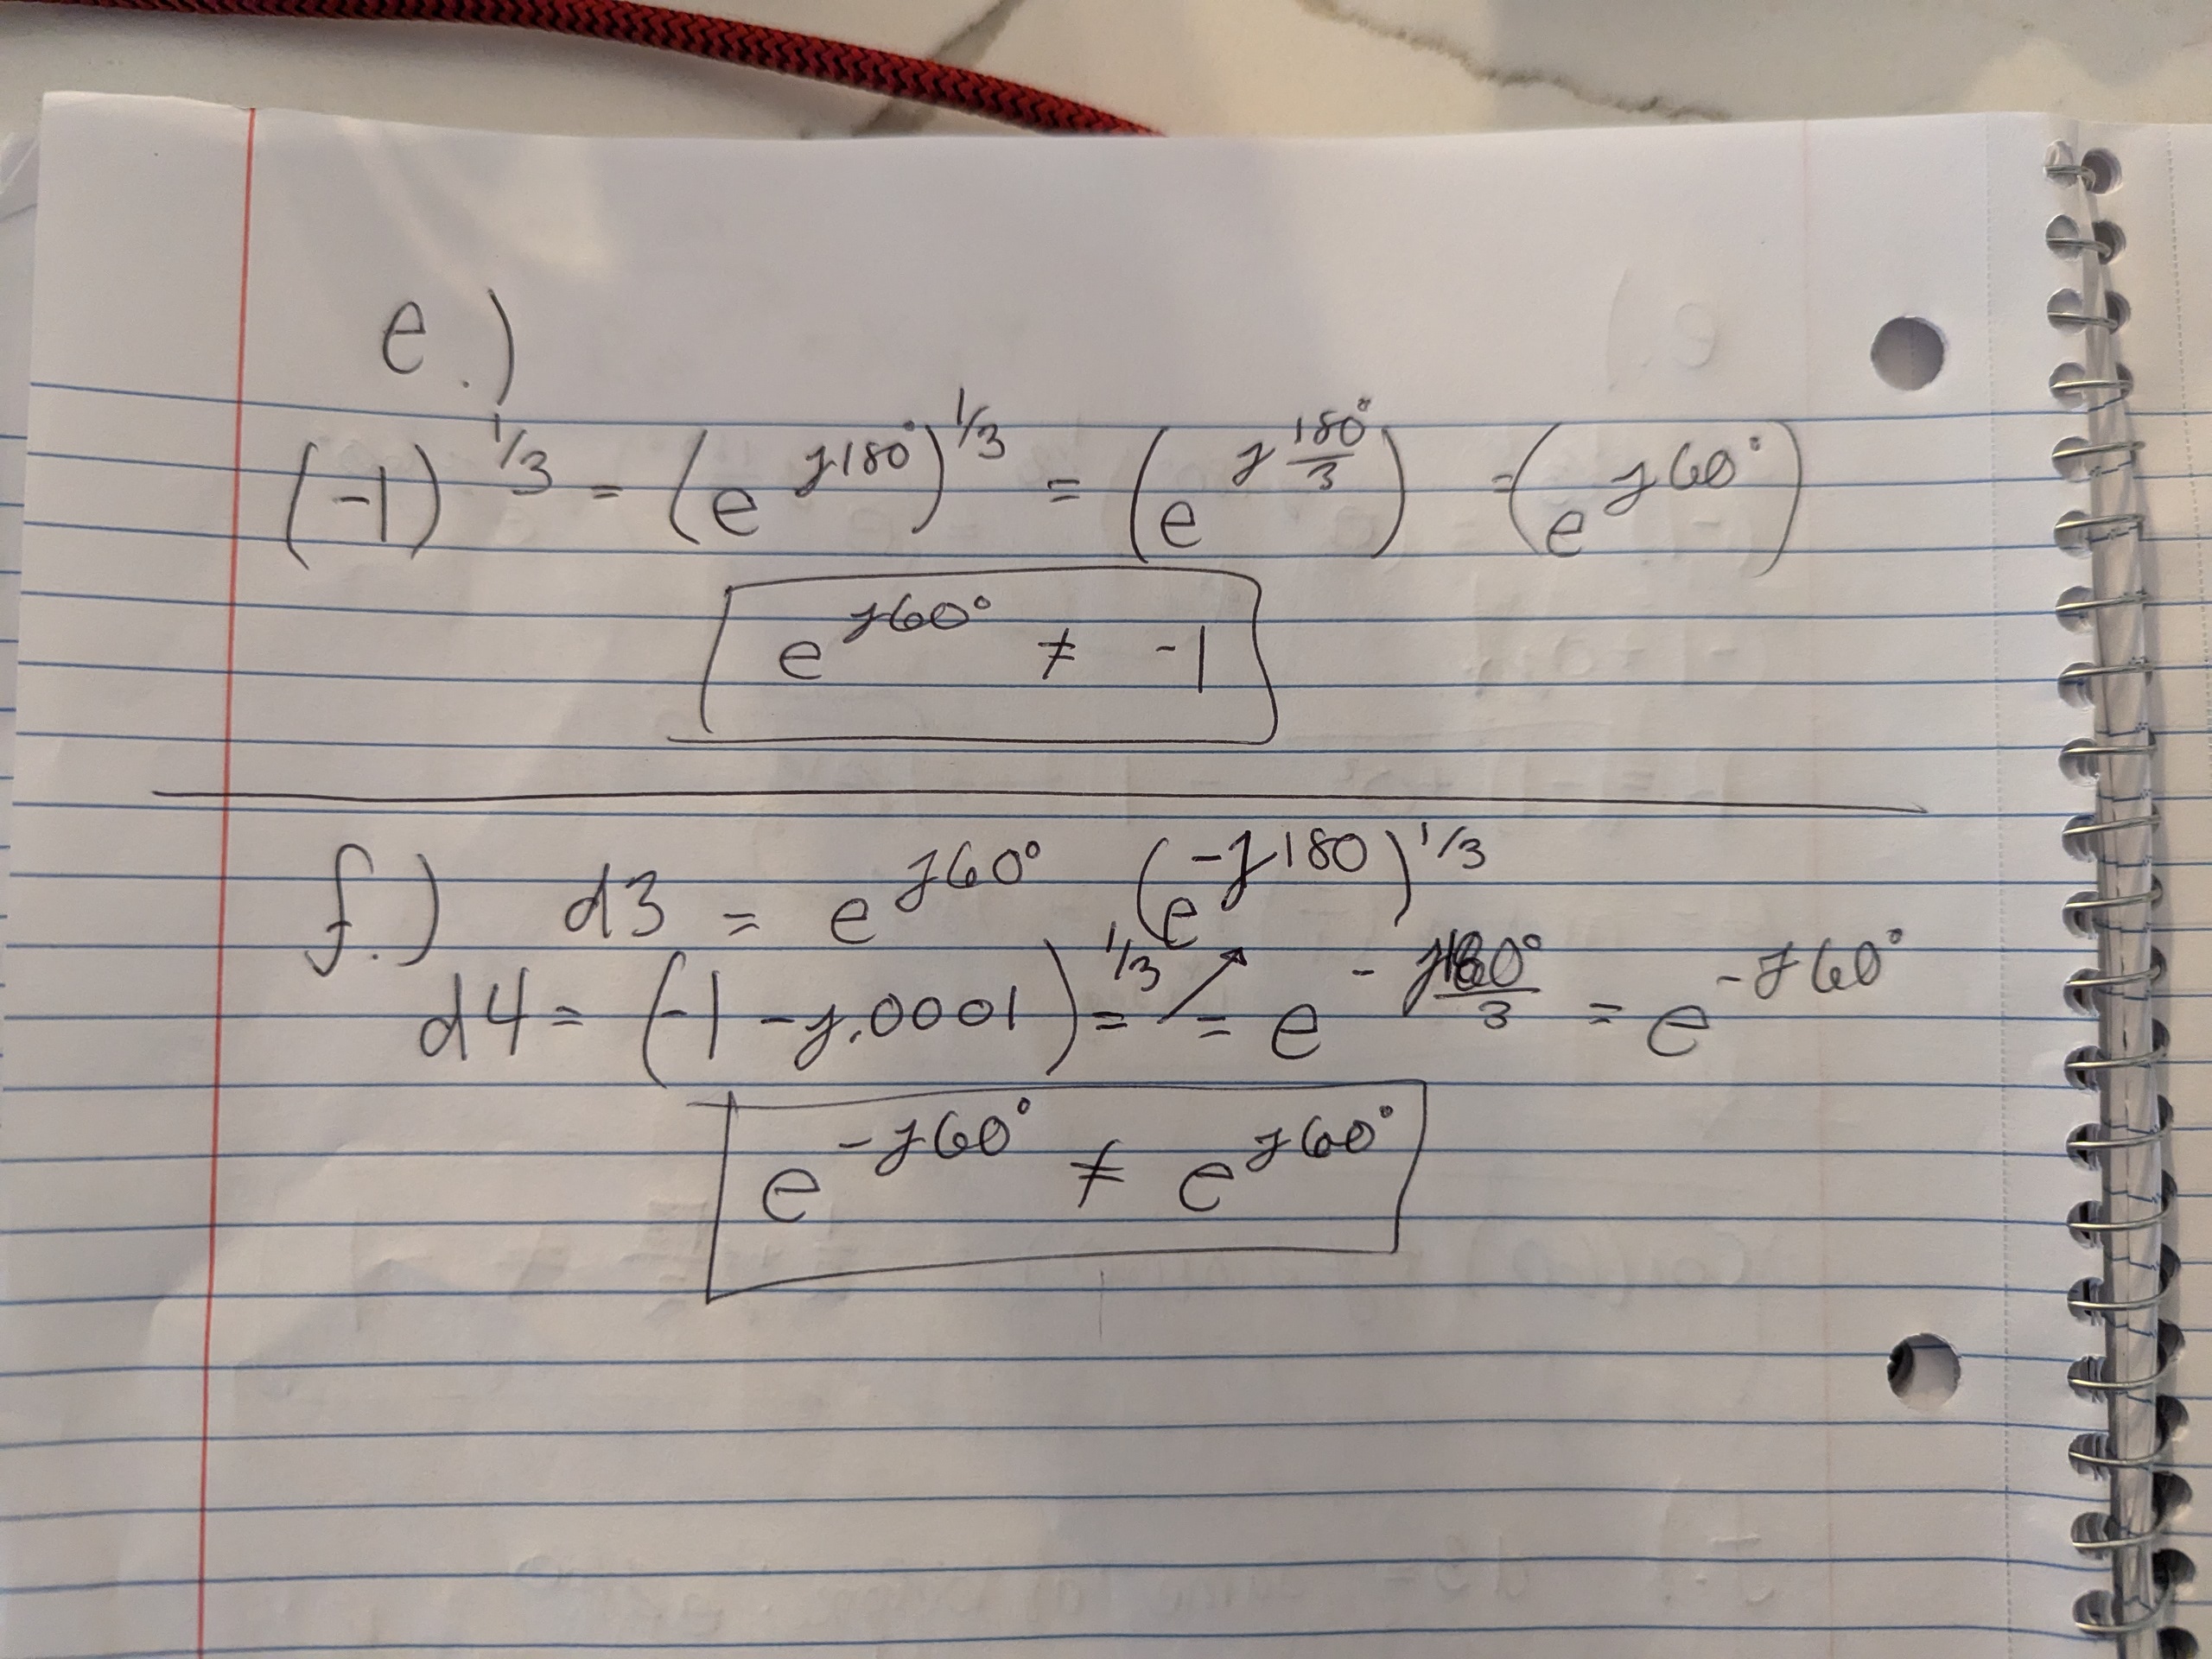 e.)
(-1)^1/3 = (e^j180°)^1/3 = (e^j 180°/3) = (e^j60°)
e^j60° ≠ -1
f.) d3 = e^j60° (e^-j180)^1/3
d4 = (-1 -j.0001)^1/3 = ↗ = e^-j180°/3 = e^-j60°
e^-j60° ≠ e^j60°